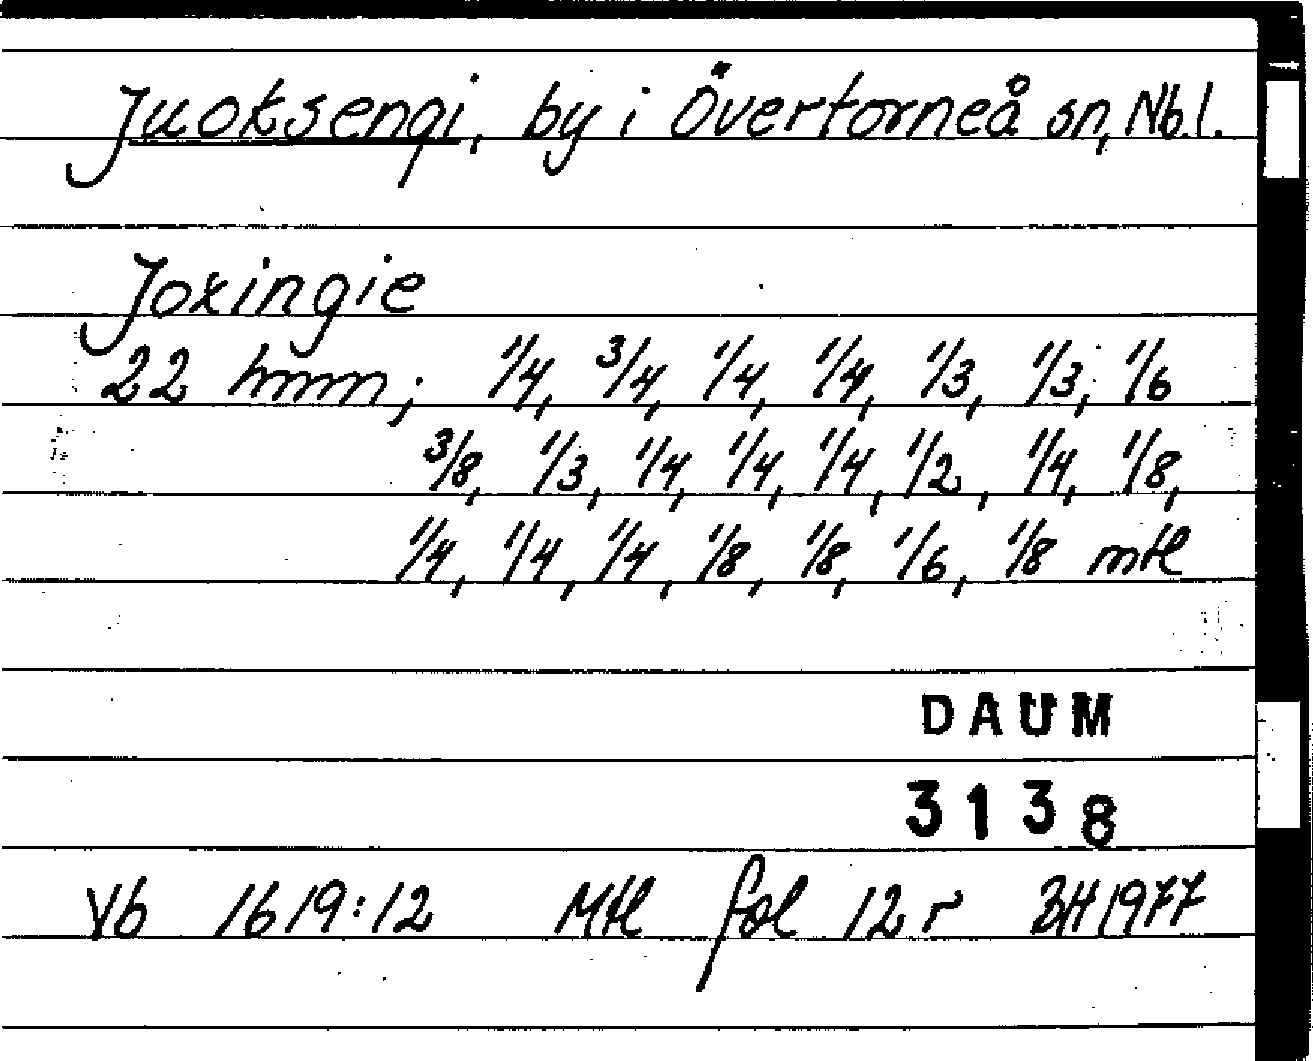 Juoksengi, by i Övertorneå sn, Nbl.
Joxingie
22 hmn; 1/4, 3/4, 1/4, 1/4, 1/3, 1/3, 1/6
3/8, 1/3, 1/4, 1/4, 1/4, 1/2, 1/4, 1/8,
1/4, 1/4, 1/4, 1/8, 1/8, 1/6, 1/8 mtl
DAUM
3138
Vb 1619:12 Mtl fol 12 r BH 1977